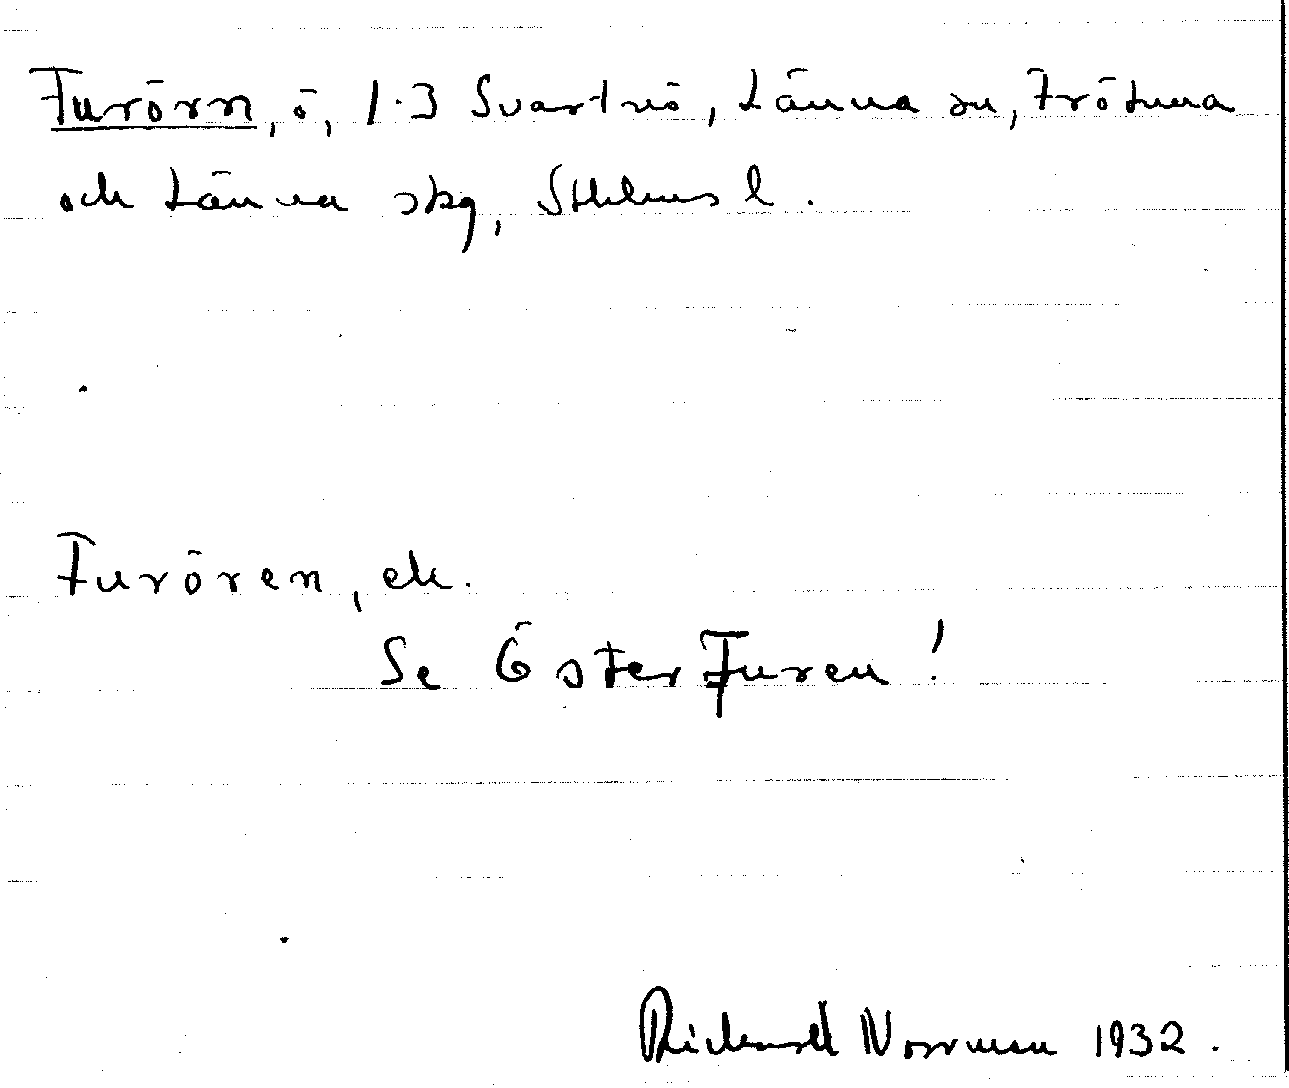 Furörn, ö, 1·3 Svartnö, Länna sn, Frötuna
och Länna skg, Sthlms l.
Furören, ek.
Se Öster Furen!
Richard Norrman 1932.